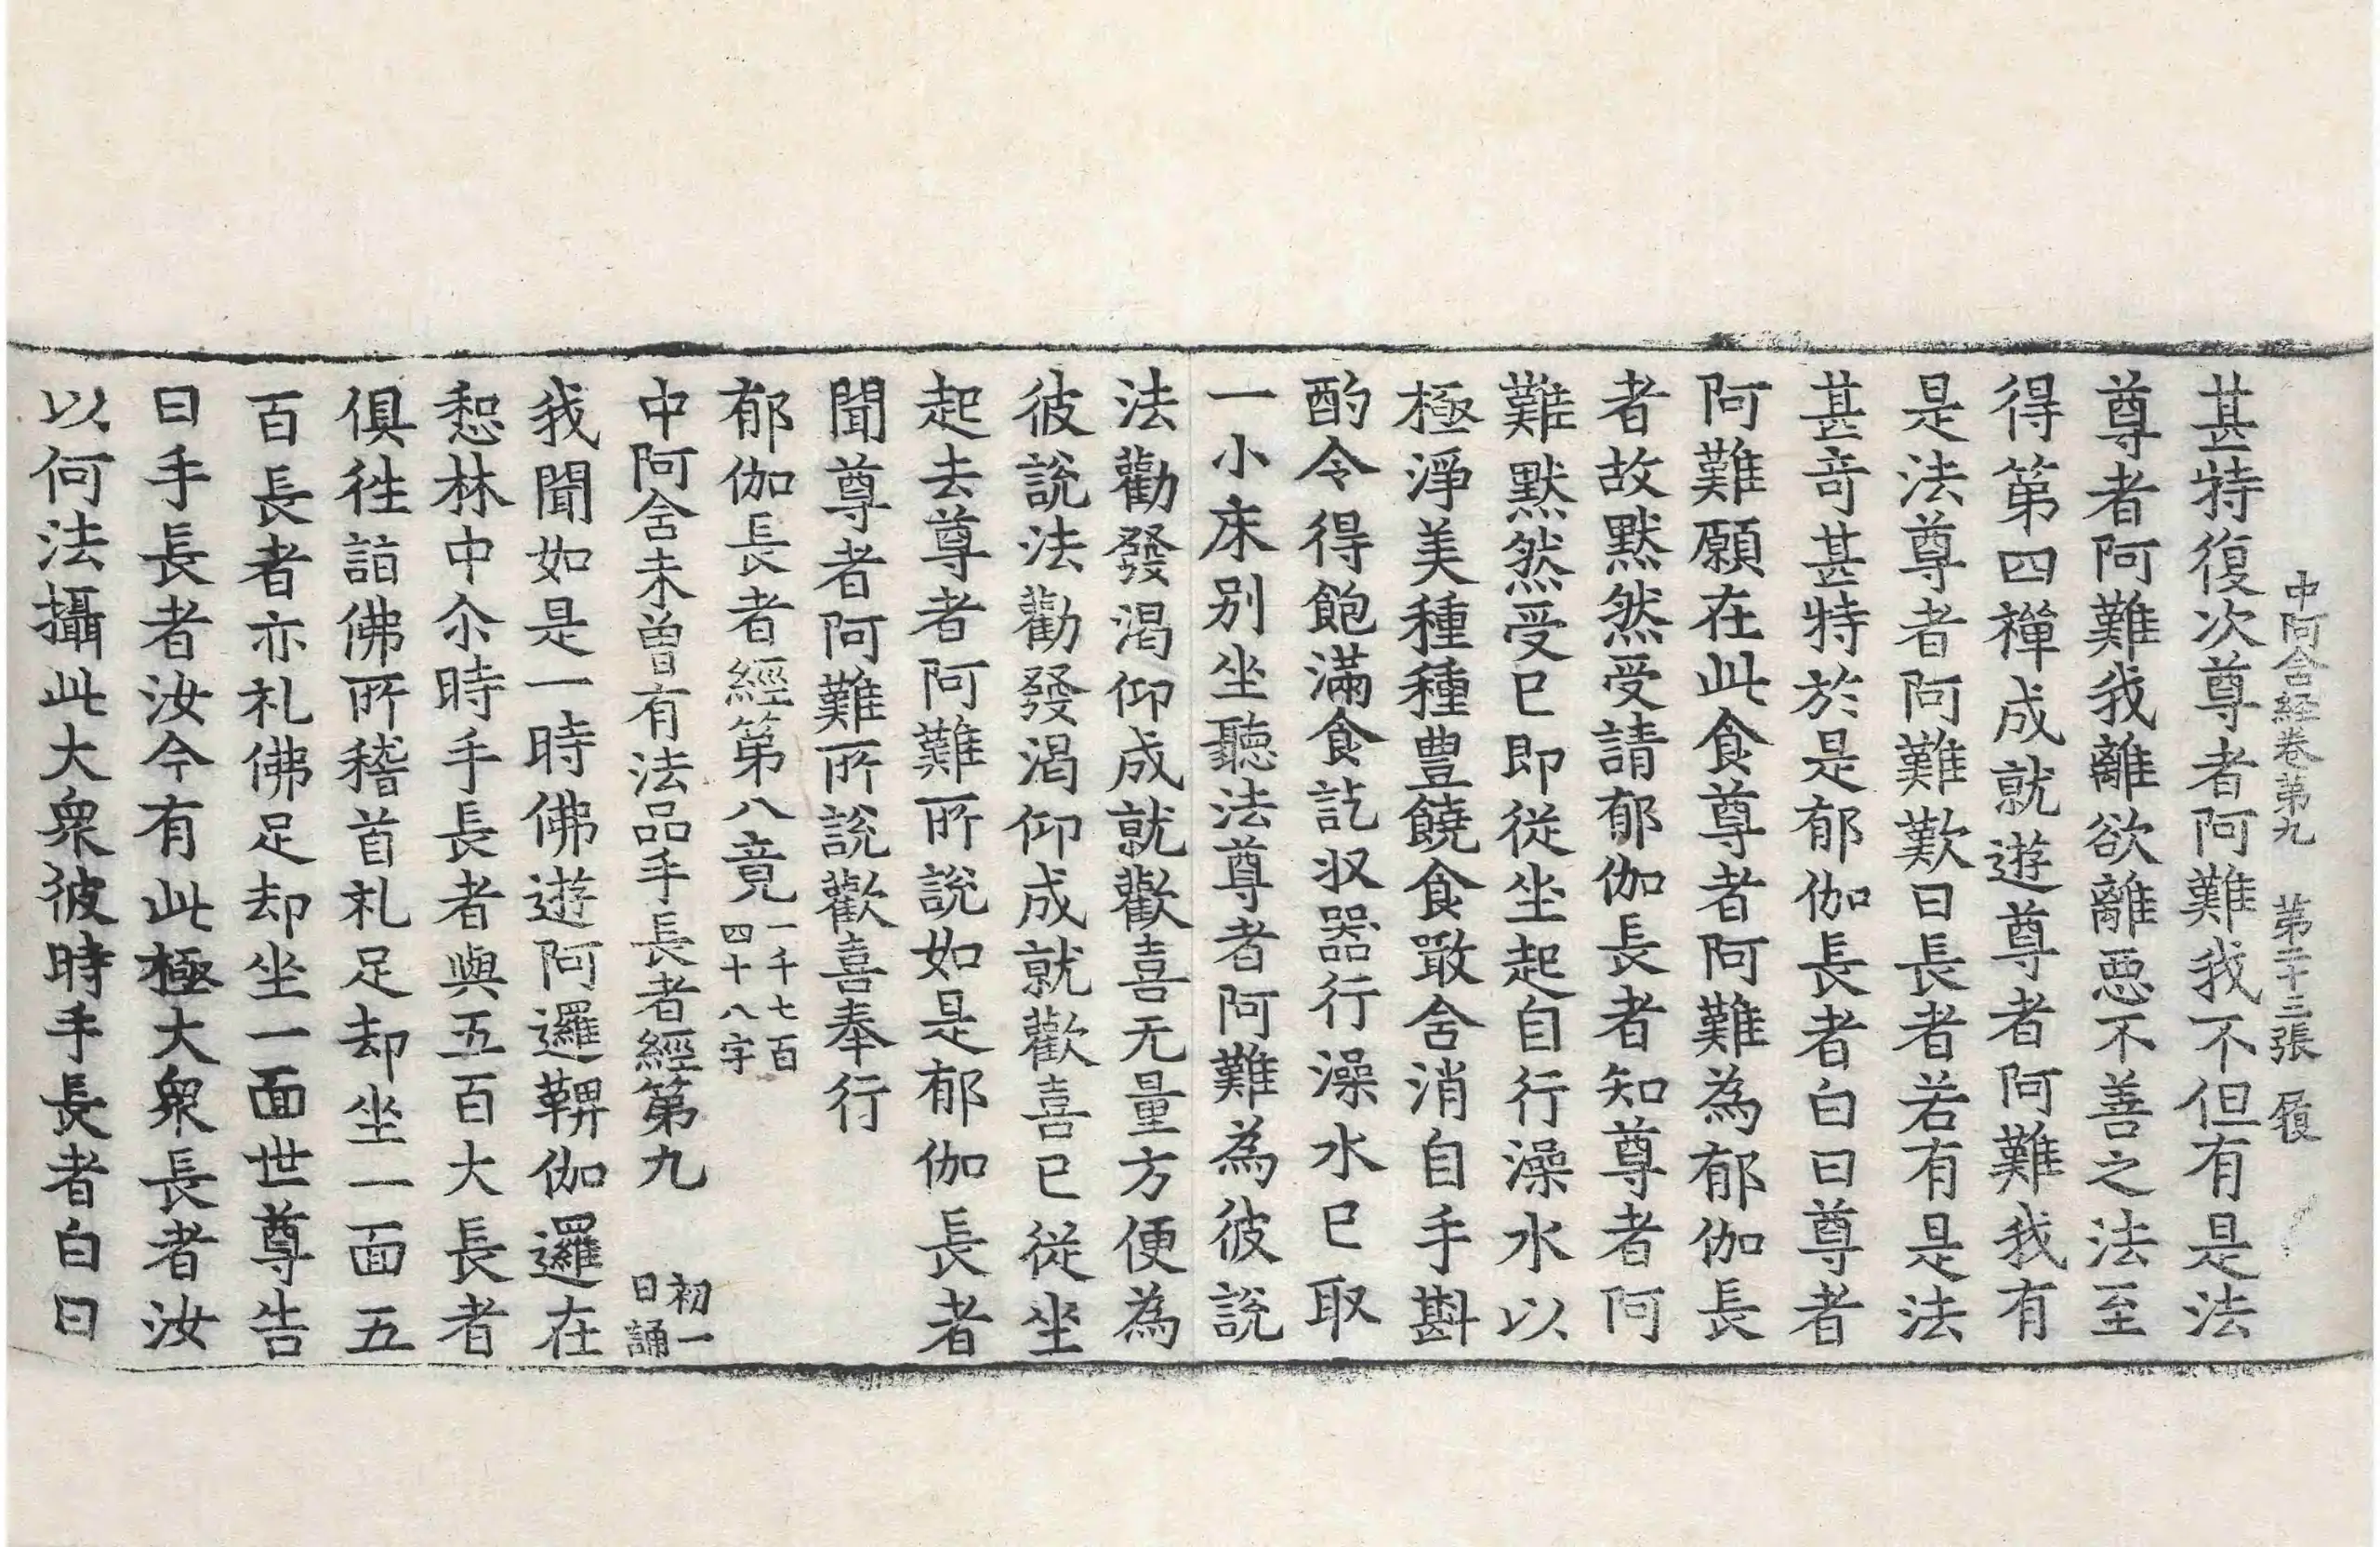 中阿含経卷第九 第二十三張 履
甚特復次尊者阿難我不但有是法
尊者阿難我離欲離惡不善之法至
得第四禪成就遊尊者阿難我有
是法尊者阿難歎曰長者若有是法
甚奇甚特於是郁伽長者白曰尊者
阿難願在此食尊者阿難為郁伽長
者故默然受請郁伽長者知尊者阿
難默然受已即從坐起自行澡水以
極淨美種種豊饒食噉含消自手斟
酌令得飽滿食訖収器行澡水已取
一小床别坐聽法尊者阿難為彼說
法勸發渴仰成就歡喜无量方便為
彼說法勸發渴仰成就歡喜已從坐
起去尊者阿難所說如是郁伽長者
聞尊者阿難所說歡喜奉行
郁伽長者經第八竟 一千七百四十八字
中阿含未曾有法品手長者經第九 初一日誦
我聞如是一時佛遊阿邏鞞伽邏在
惒林中尒時手長者與五百大長者
俱徃詣佛所稽首礼足却坐一面五
百長者亦礼佛足却坐一面世尊告
曰手長者汝今有此極大衆長者汝
以何法攝此大衆彼時手長者白曰